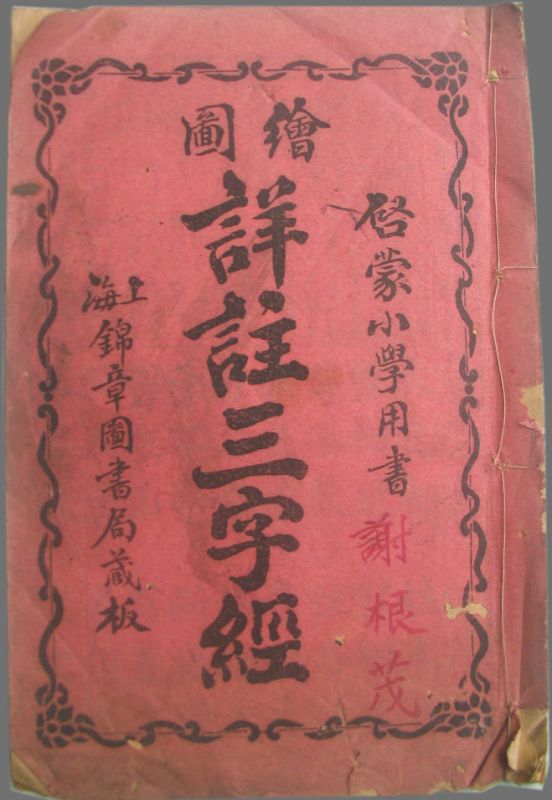 繪圖
詳註三字經
啓蒙小學用書
謝根茂
上海錦章圖書局蔵板